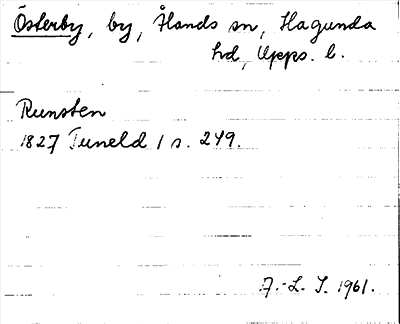 Österby, by, Ålands sn, Hagunda
hd, Upps. l.
Runsten
1827 Tuneld 1 s. 249.
A.-L. J. 1961.